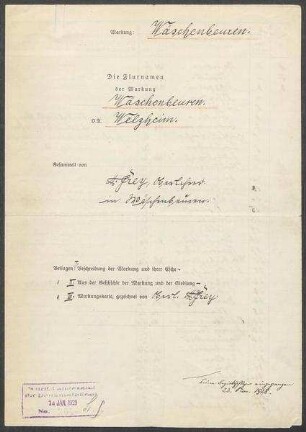 Markung: Wäschenbeuren.
Die Flurnamen
der Markung
Wäschenbeuren.
O.A. Welzheim.
Gesammelt von
Frey,
in Wäschenbeuren.
Beilagen: I Beschreibung der Markung und ihrer Esche
II Aus der Geschichte der Markung und der Siedlung
III Markungskarte, gezeichnet von Frey